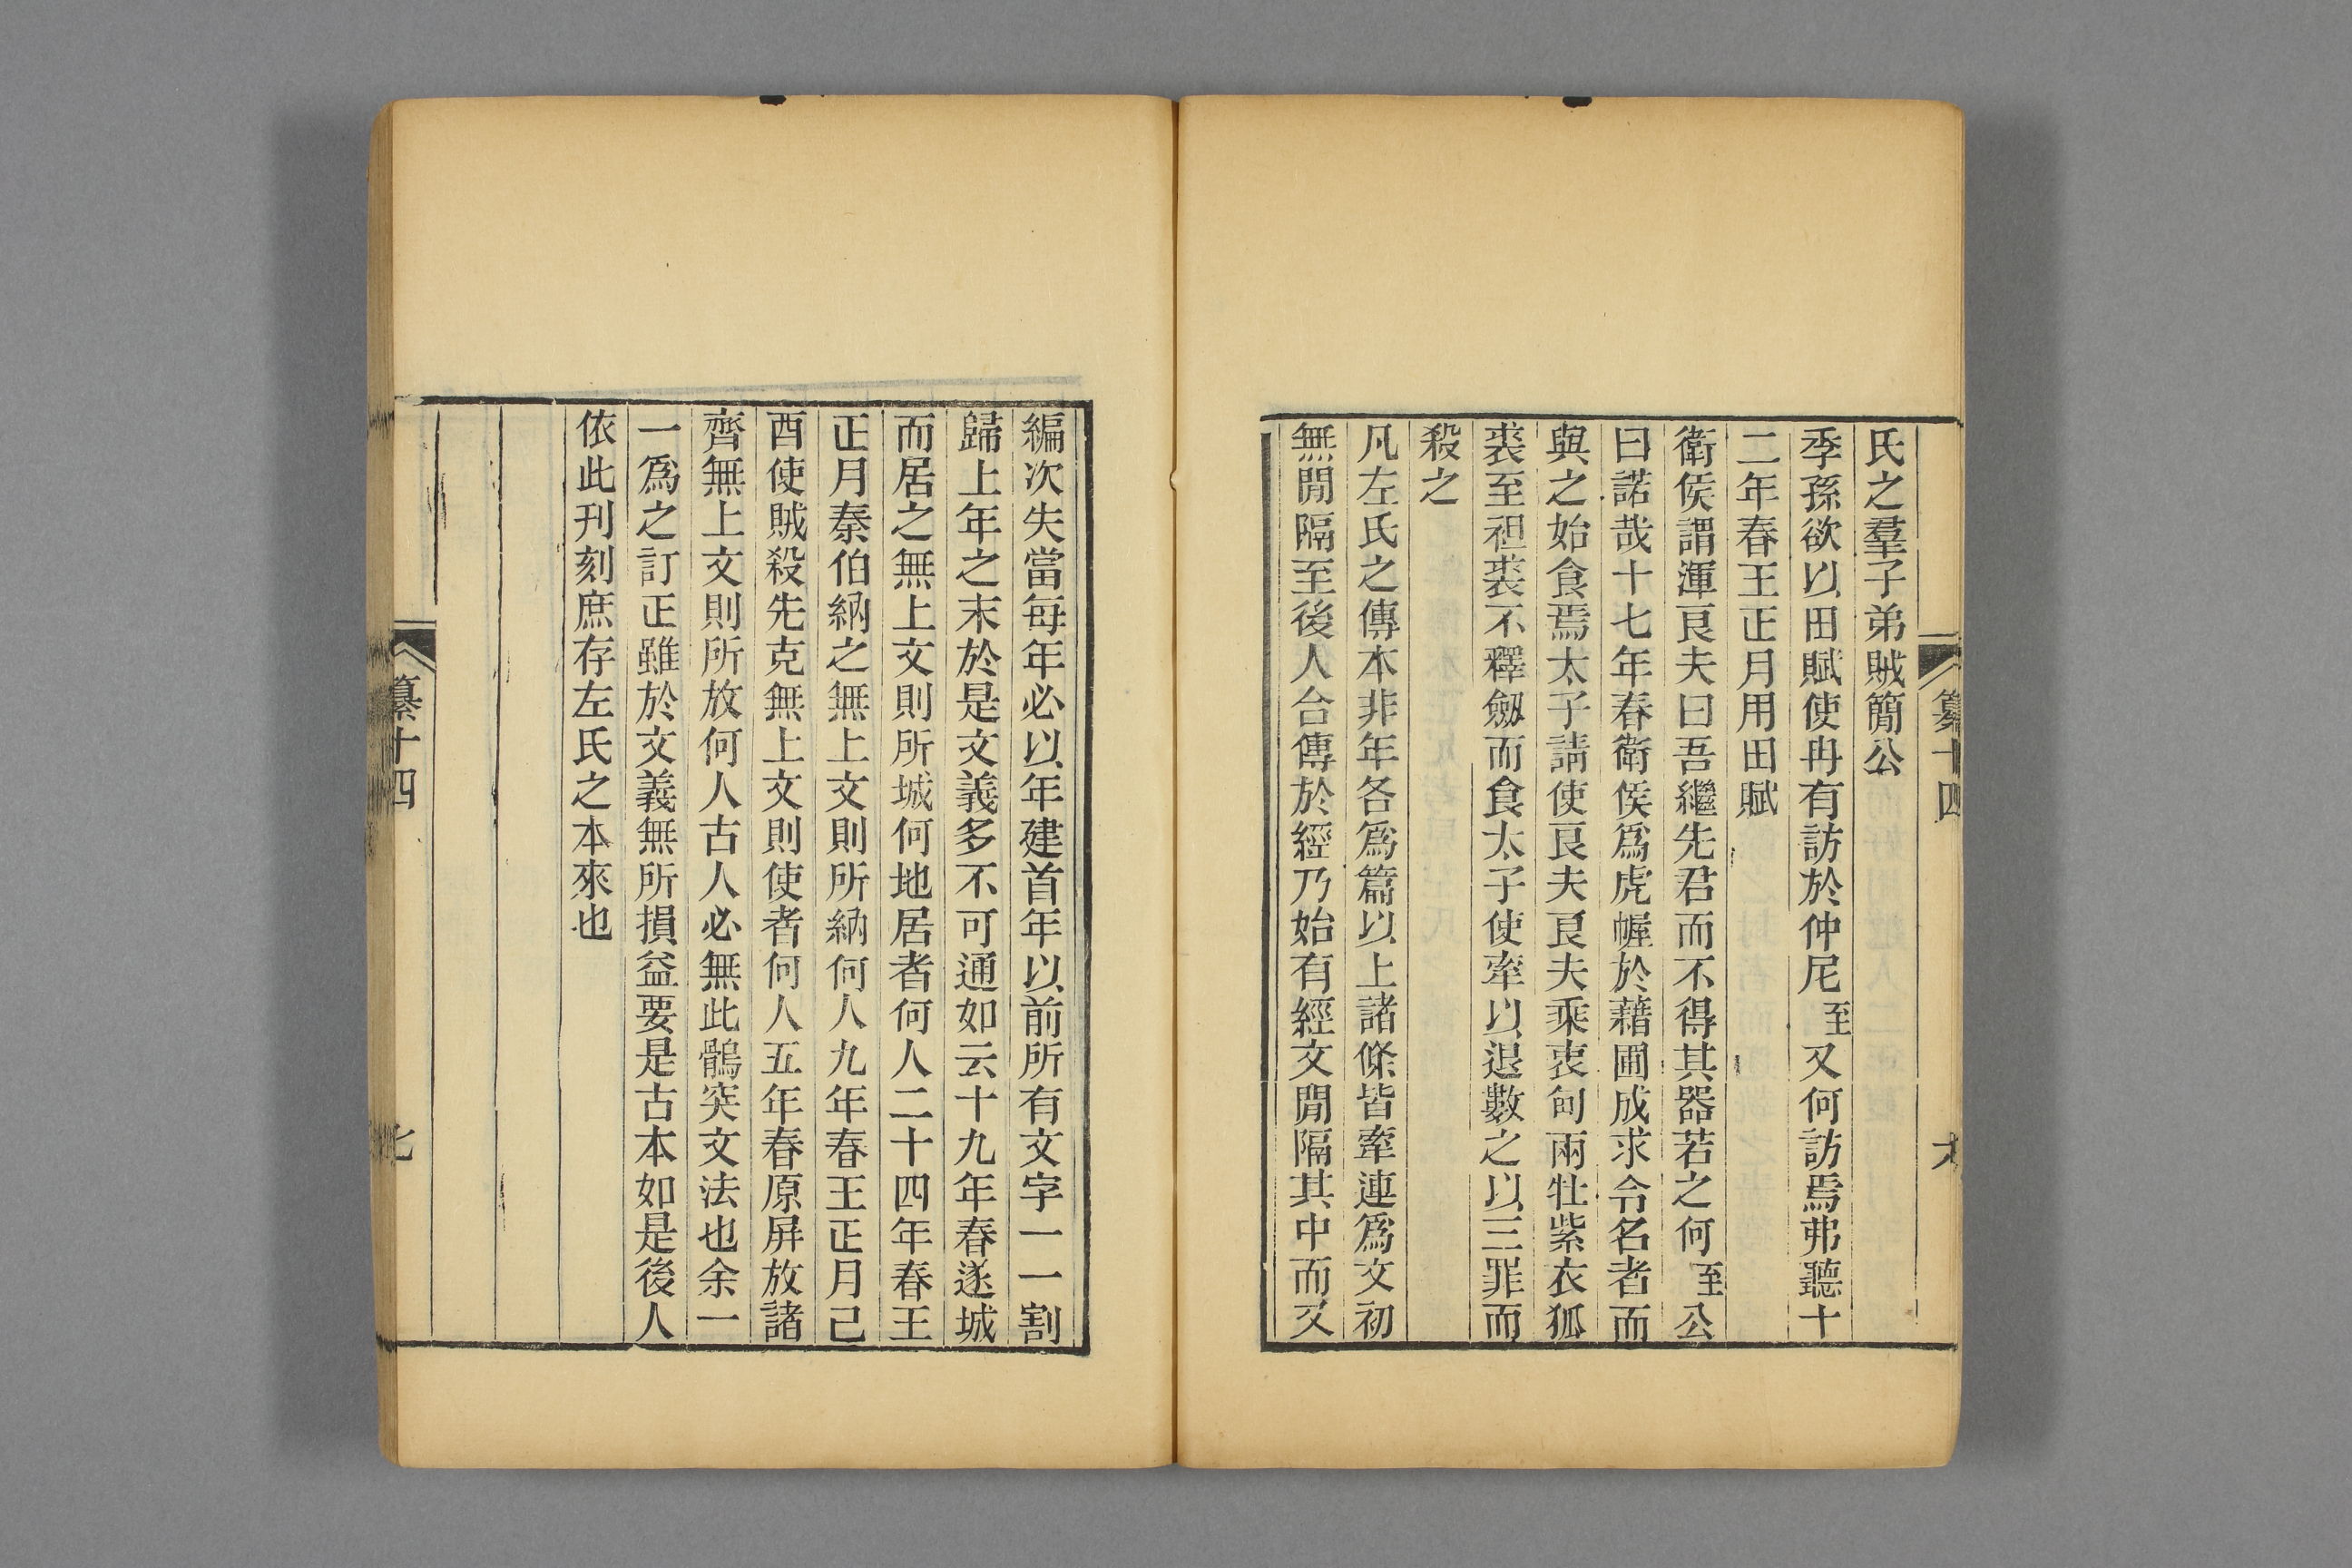 氏之羣子弟賊簡公
季孫欲以田賦使冉有訪於仲尼至又何訪焉弗聽十
二年春王正月用田賦
衛侯謂渾良夫曰吾繼先君而不得其器若之何至公
曰諾哉十七年春衛侯爲虎幄於藉圃成求令名者而
與之始食焉太子請使良夫良夫乘衷甸兩牡紫衣狐
裘至袒裘不釋劒而食太子使牽以退數之以三罪而
殺之
凡左氏之傳本非年各爲篇以上諸條皆牽連爲文初
無閒隔至後人合傳於經乃始有經文閒隔其中而又
編次失當每年必以年建首年以前所有文字一一割
歸上年之末於是文義多不可通如云十九年春遂城
而居之無上文則所城何地居者何人二十四年春王
正月秦伯納之無上文則所納何人九年春王正月己
酉使賊殺先克無上文則使者何人五年春原屏放諸
齊無上文則所放何人古人必無此鶻突文法也余一
一爲之訂正雖於文義無所損益要是古本如是後人
依此刊刻庶存左氏之本來也
纂十四